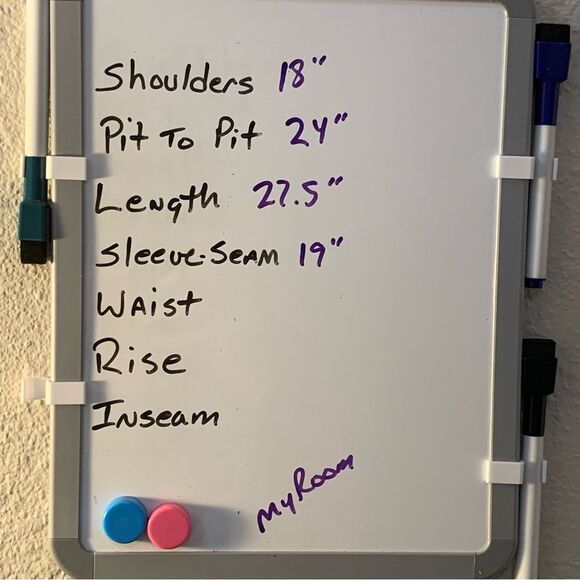 Shoulders 18"
Pit To Pit 24"
Length 27.5"
Sleeve-Seam 19"
Waist
Rise
Inseam
My Room